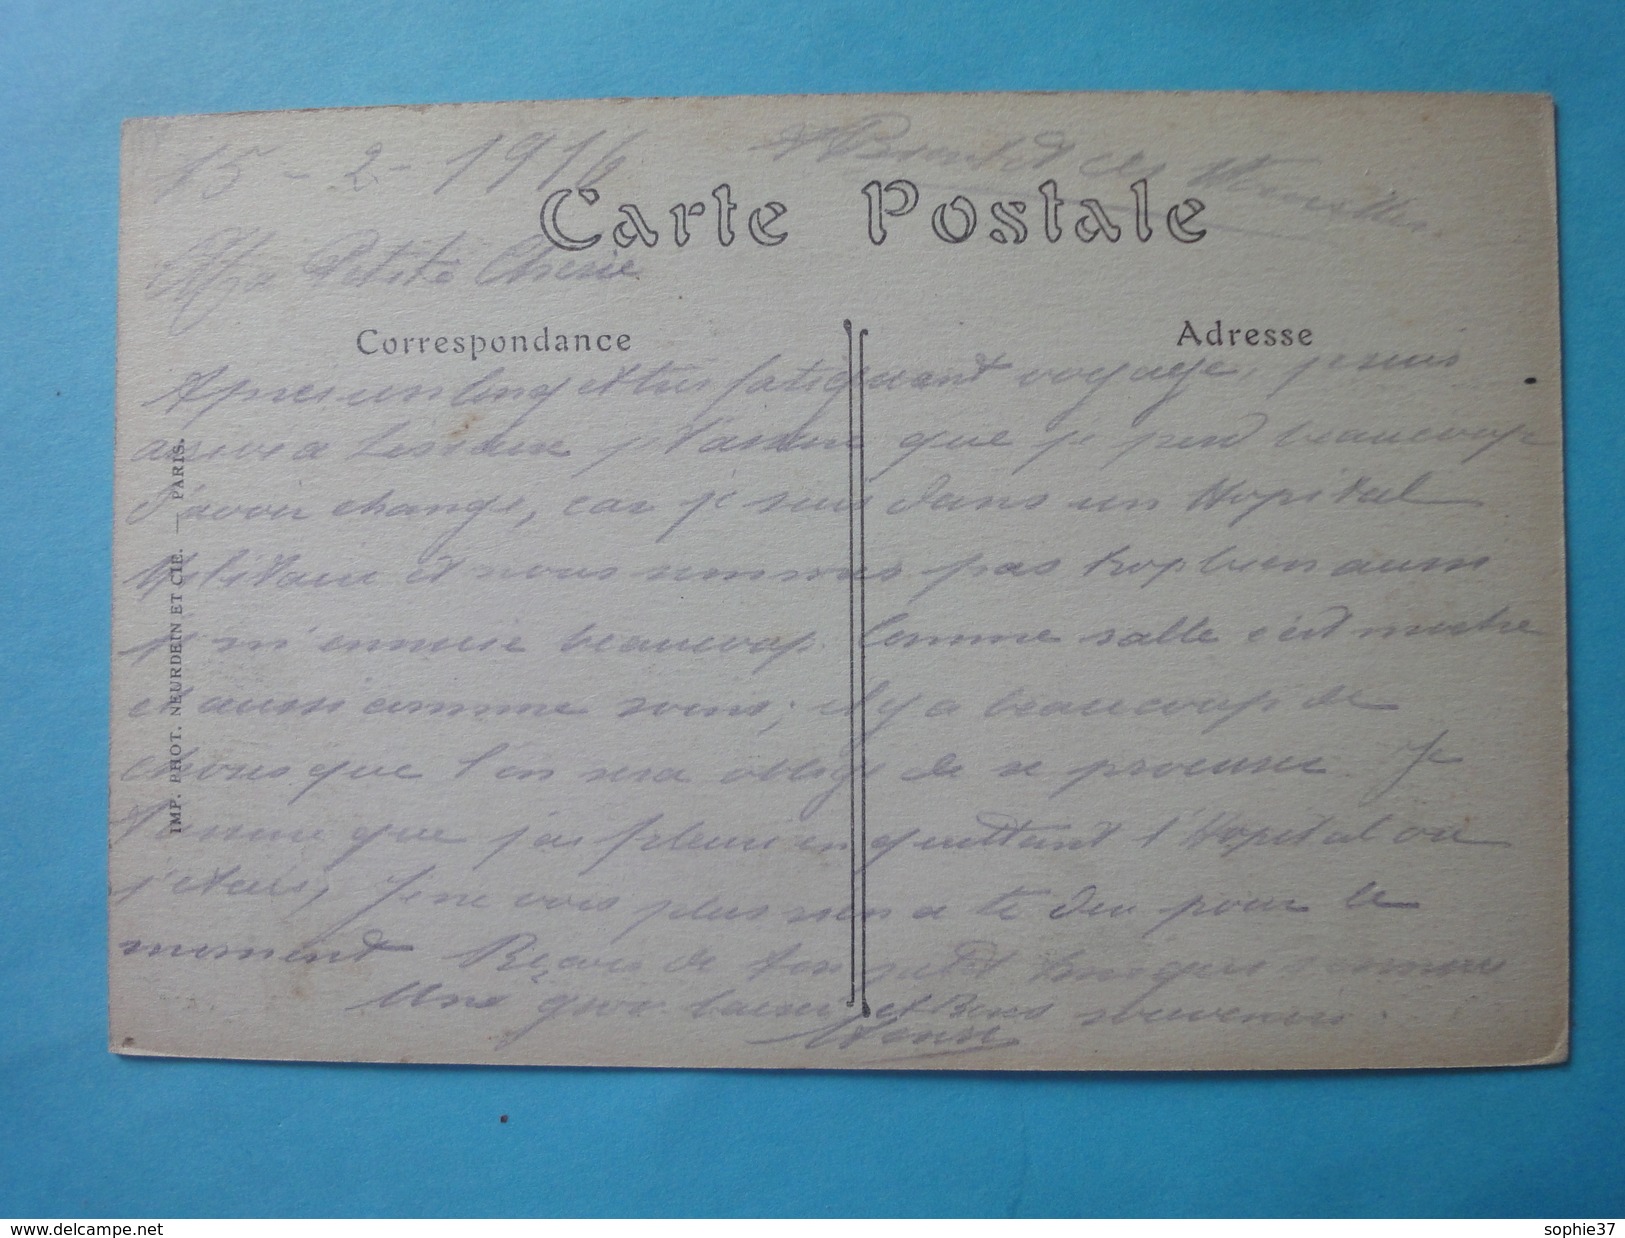 15-2-1916
Carte Postale
Ma Petite Cherie
Correspondance
Adresse
Apres un long et tres fatiguant voyage, je suis
arrive a Lisieux je t'assure que je perd beaucoup
d'avoir change, car je suis dans un Hopital
Militaire et nous sommes pas trop bien aussi
je m'ennuie beaucoup. Comme salle c'est moche
et aussi comme soins; il y a beaucoup de
choses que l'on sera oblige de se procurer. Je
t'assure que j'ai pleure en quittant l'Hopital ou
j'etais, Je ne vois plus rien a te dire pour le
moment Reçois de ton petit
Une gros baiser et Bons souvenir.
Henri
IMP. PHOT. NEURDEIN ET CIE. — PARIS.
www.delcampe.net
sophie37